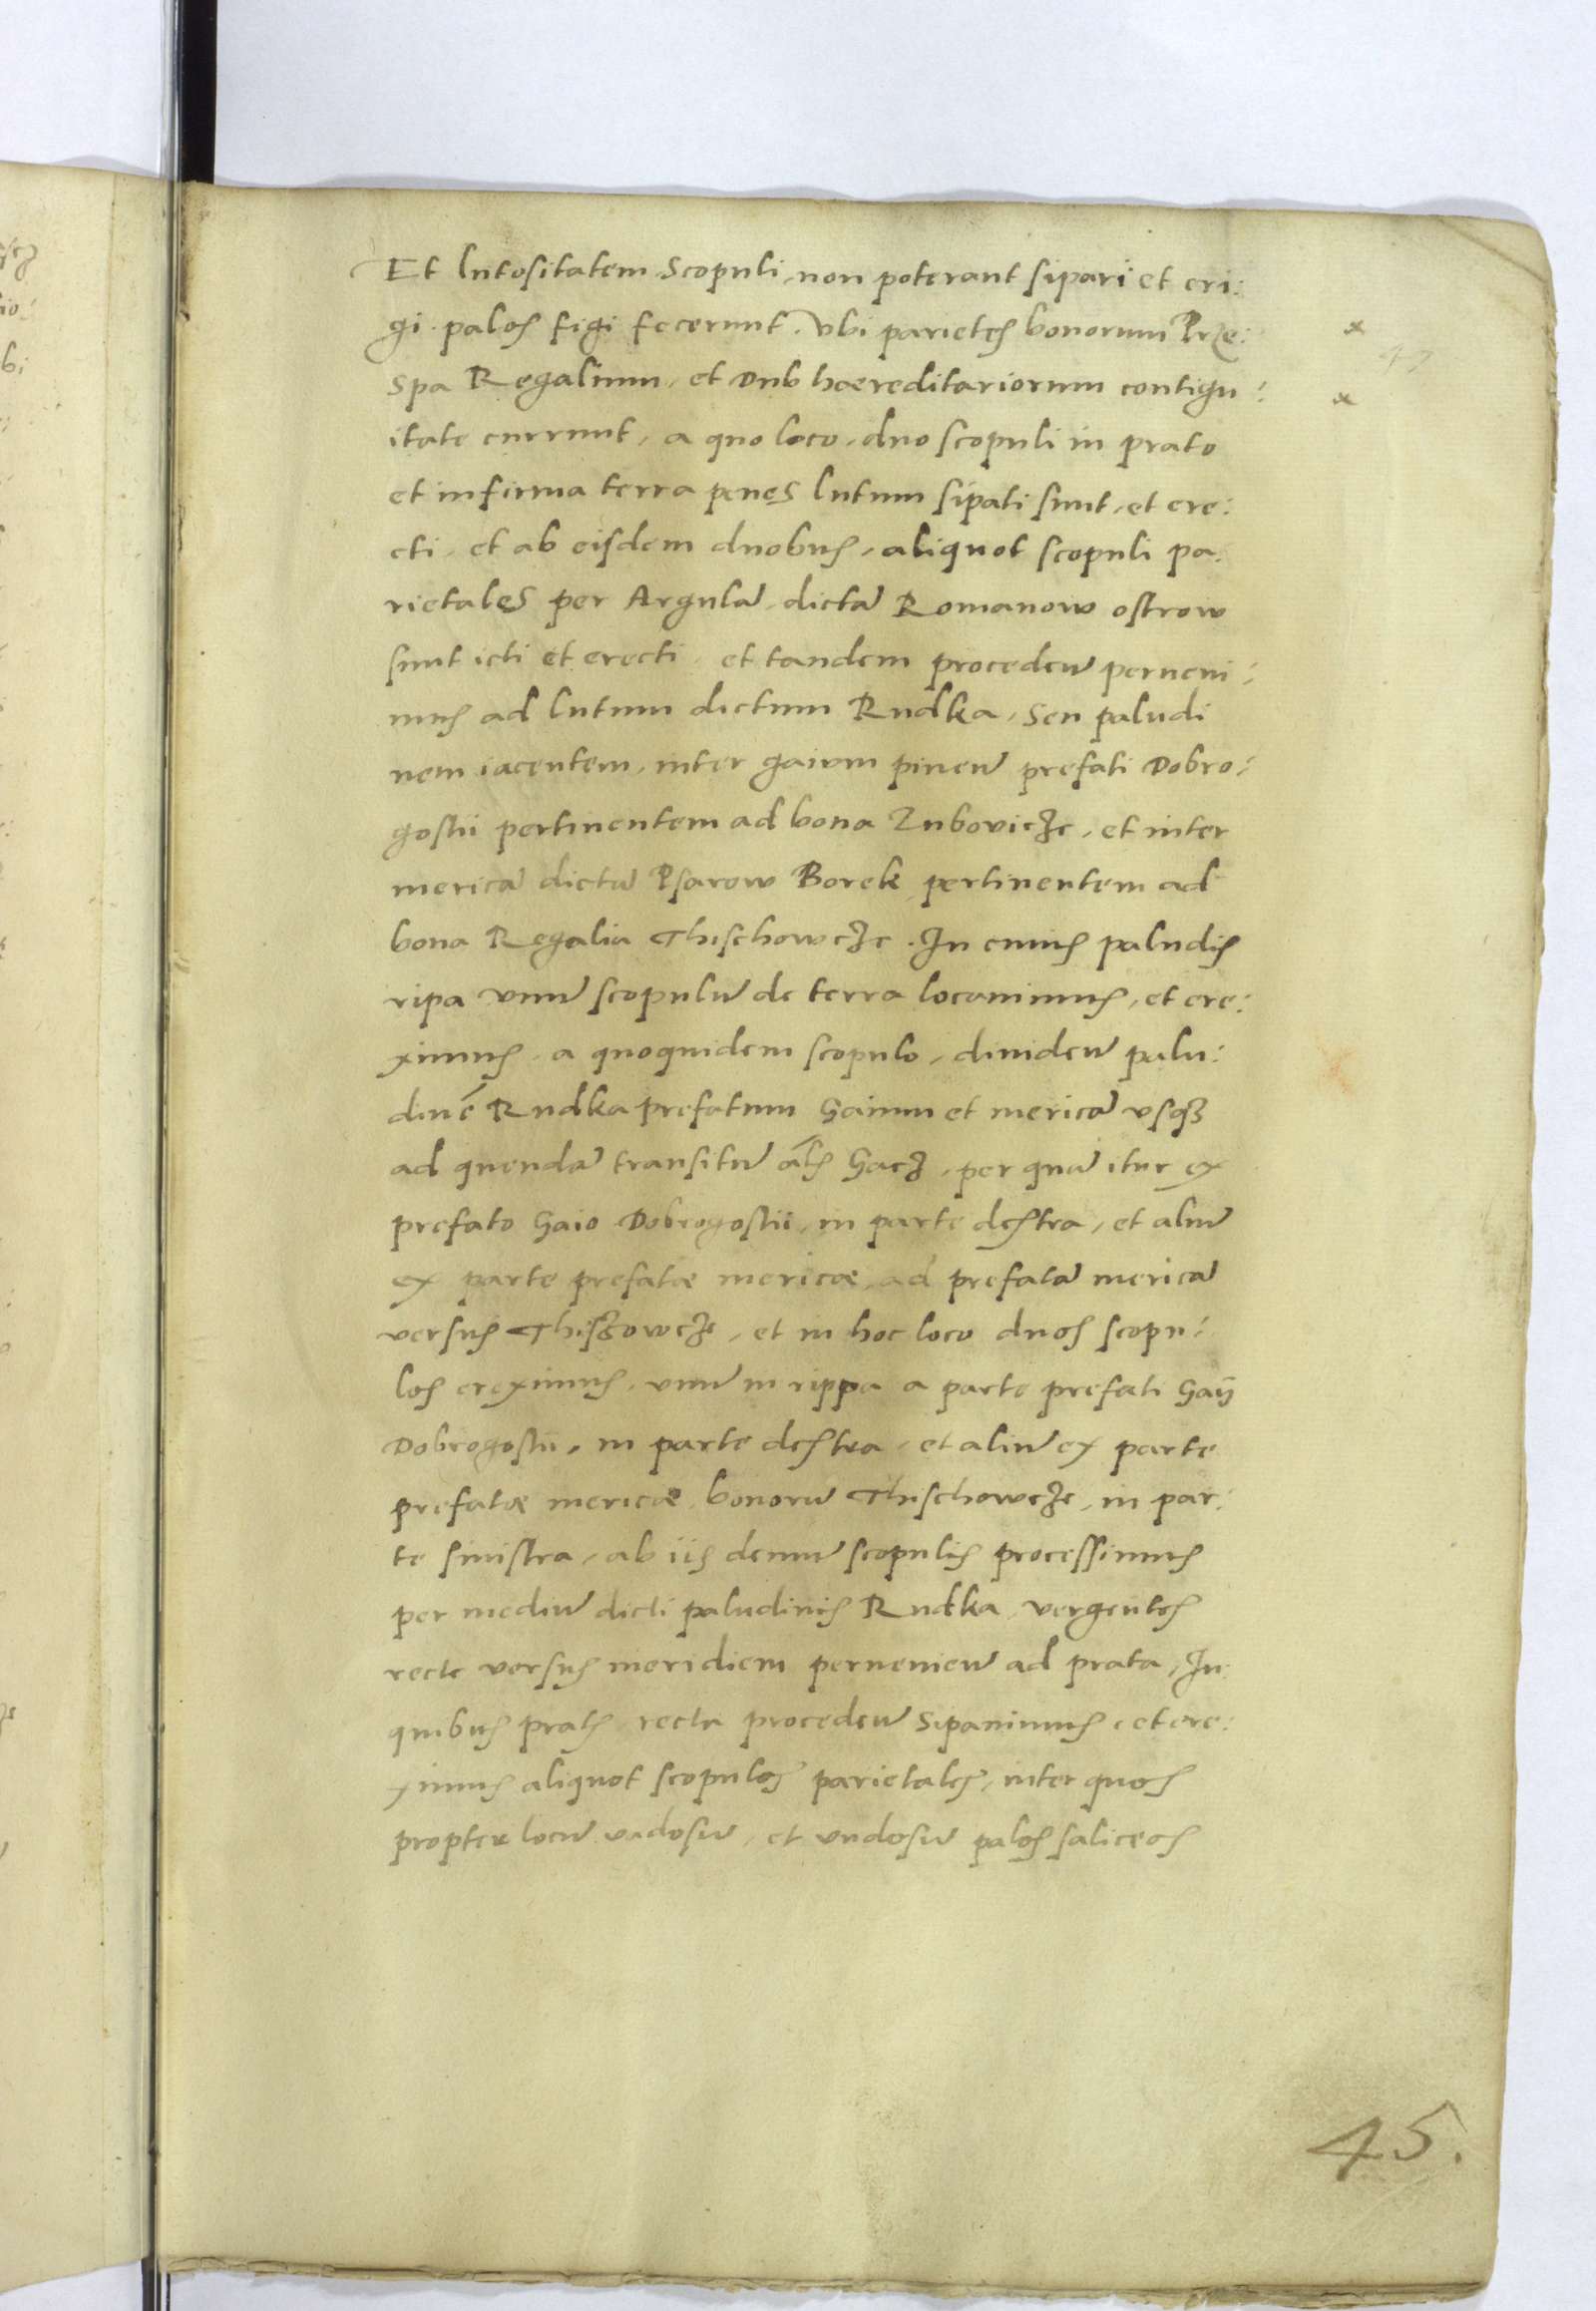 Et lutositatem Scopuli, non poterant sipari et eri:
gi. palos figi fecerunt. Vbi parietes bonorum Prze:
Spa Regalium, et Dub haereditariorum contigu:
itate currunt, a quo loco, duo scopuli in prato
et infirma terra penes lutum sipati sunt, et ere:
cti, et ab eisdem duobus, aliquot scopuli pa:
rietales per Argulā dictā Romanow ostrow
sunt icti et erecti, et tandem procedeñ perueni:
mus ad lutum dictum Rudka, Seu paludi
nem iacentem, inter gaium pineū prefati Dobro:
gostii pertinentem ad bona Zubovicze, et inter
mericā dictā Psarow Borek pertinentem ad
bona Regalia Thischowcze. In cuius paludis
ripa vnū scopulū de terra locauimus, et ere:
ximus, a quoquidem scopulo, diuideñ palu:
dinē Rudka prefatum Gaium et mericā vsq3
ad quendā transitū al̃s Gacz, per quā itur ex
prefato Gaio Dobrogostii, in parte dextra, et aliū
ex parte prefatæ mericæ, ad prefatā mericā
versus Thiszowcze, et in hoc loco duos scopu:
los ereximus, vnū in rippa a parte prefati Gaÿ
Dobrogostii, in parte dextra, et aliū ex parte
prefatæ mericæ bonorū Thischowcze, in par:
te sinistra, ab iis demū scopulis processimus
per mediū dicti paludinis Rudka, vergentes
recte versus meridiem perueñieñ ad prata, In
quibus pratis recta procedeñ Sipauimus, et ere:
ximus aliquot scopulos parietales, inter quos
propter locū vadosū, et vndosū palos saliceos
47
45.